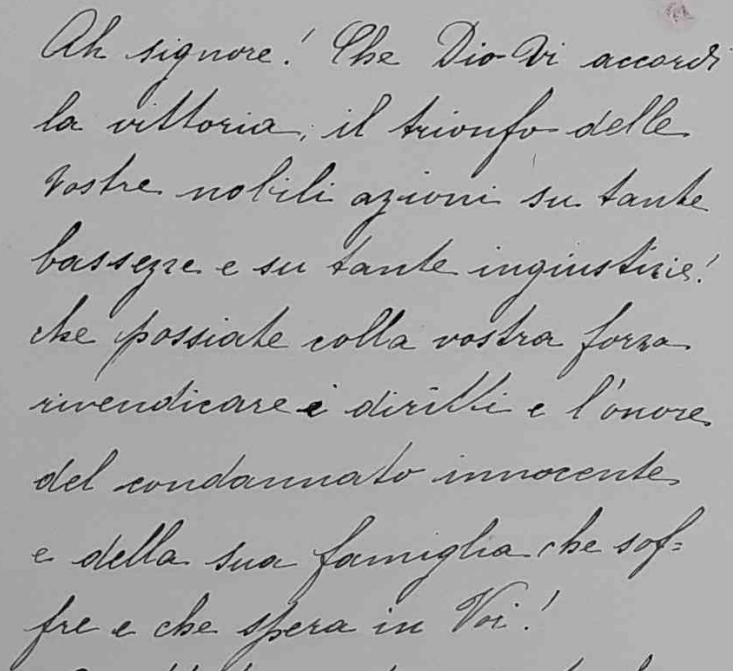 Ah signore! Che Dio Vi accordi
la vittoria, il trionfo delle
Vostre nobili azioni su tante
bassezze e su tante ingiustizie!
che possiate colla vostra forza
rivendicare i diritti e l'onore
del condannato innocente
e della sua famiglia che sof=
fre e che spera in Voi!